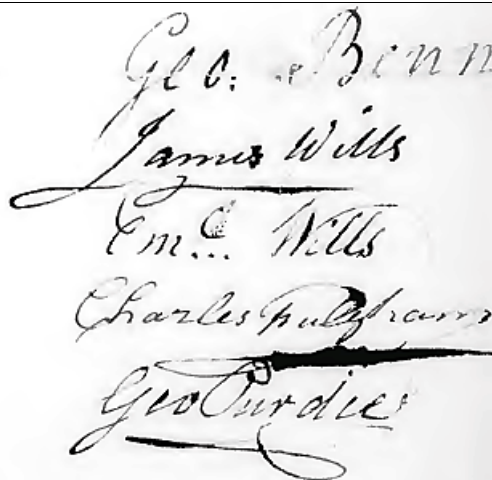 Geo. Benn
James Wills
Em.d Wills
Charles Fulgham
Geo Purdie